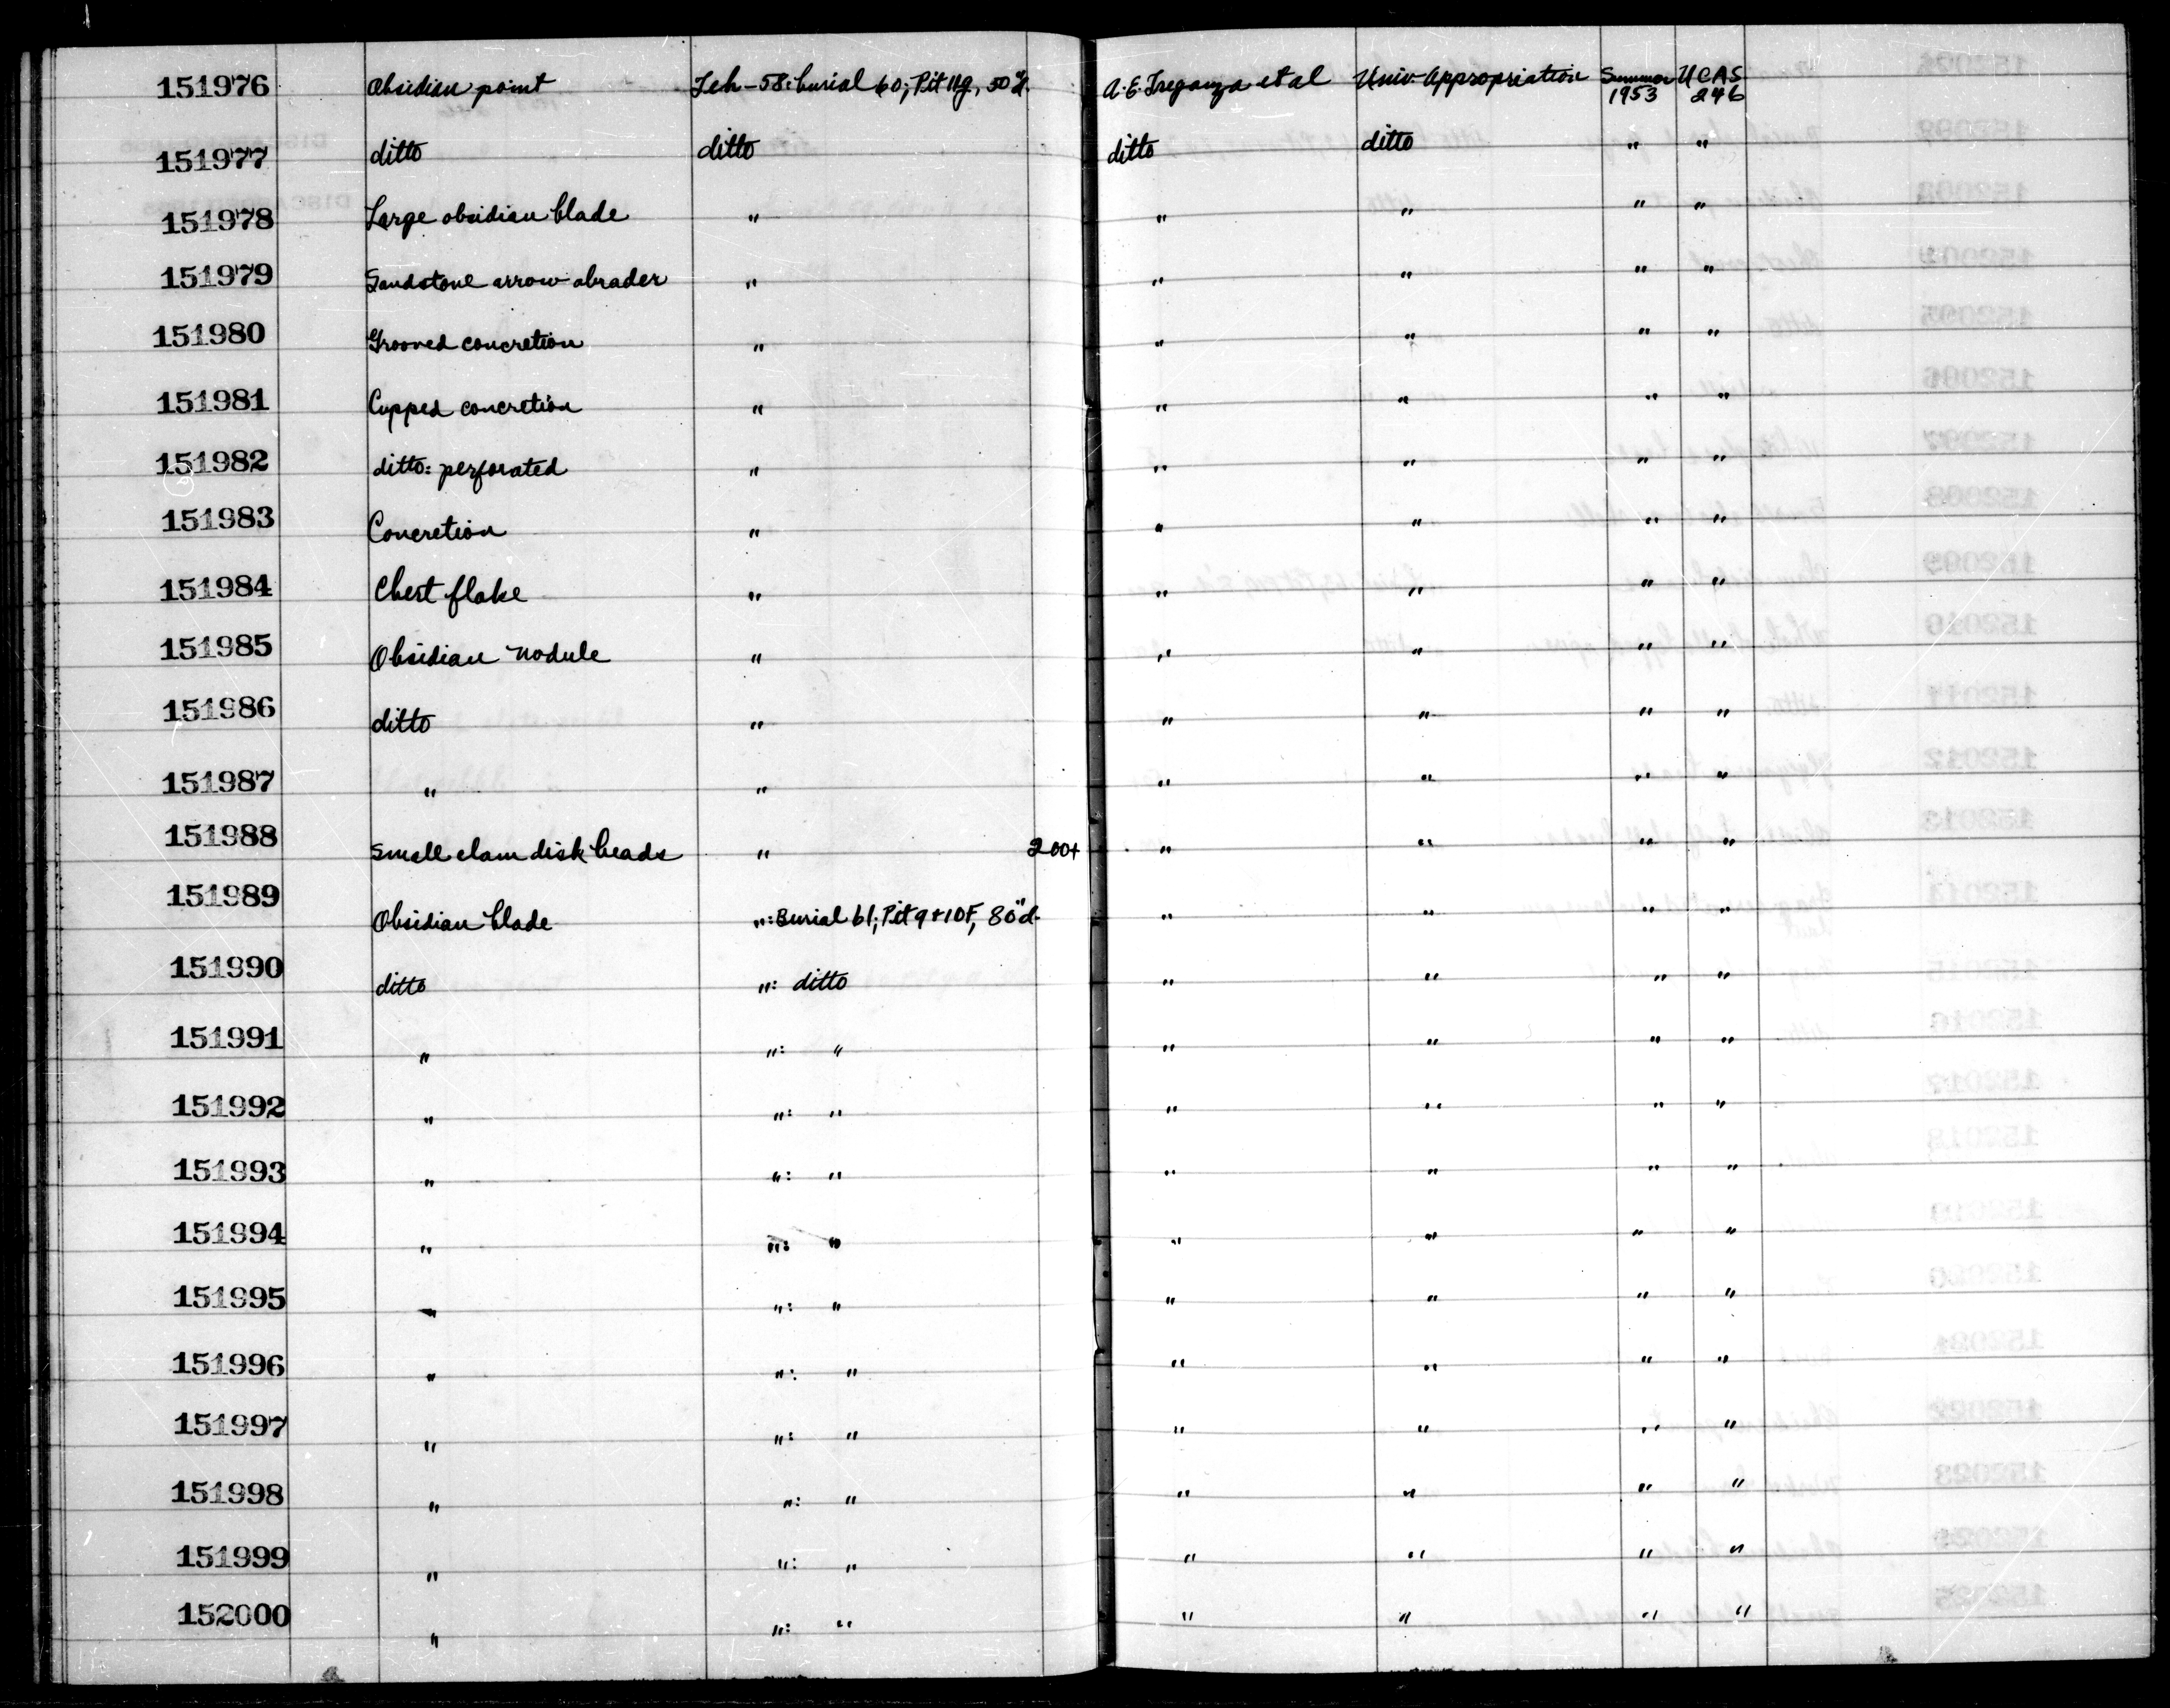 151976 Obsidian point Teh-58: burial 60; Pit 11g, 50"d. A. E. Treganza et al Univ. Appropriation Summer 1953 UCAS 246
151977 ditto ditto ditto ditto " "
151978 Large obsidian blade " " " " "
151979 Sandstone arrow abrader " " " " "
151980 Grooved concretion " " " " "
151981 Cupped concretion " " " " "
151982 ditto: perforated " " " " "
151983 Concretion " " " " "
151984 Chert flake " " " " "
151985 Obsidian nodule " " " " "
151986 ditto " " " " "
151987 " " " " " "
151988 Small clam disk beads " 200+ " " " "
151989 Obsidian blade ": Burial 61; Pit 9+10F, 80"d. " " " "
151990 ditto ": ditto " " " "
151991 " ": " " " " "
151992 " ": " " " " "
151993 " ": " " " " "
151994 " ": " " " " "
151995 " ": " " " " "
151996 " ": " " " " "
151997 " ": " " " " "
151998 " ": " " " " "
151999 " ": " " " " "
152000 " ": " " " " "